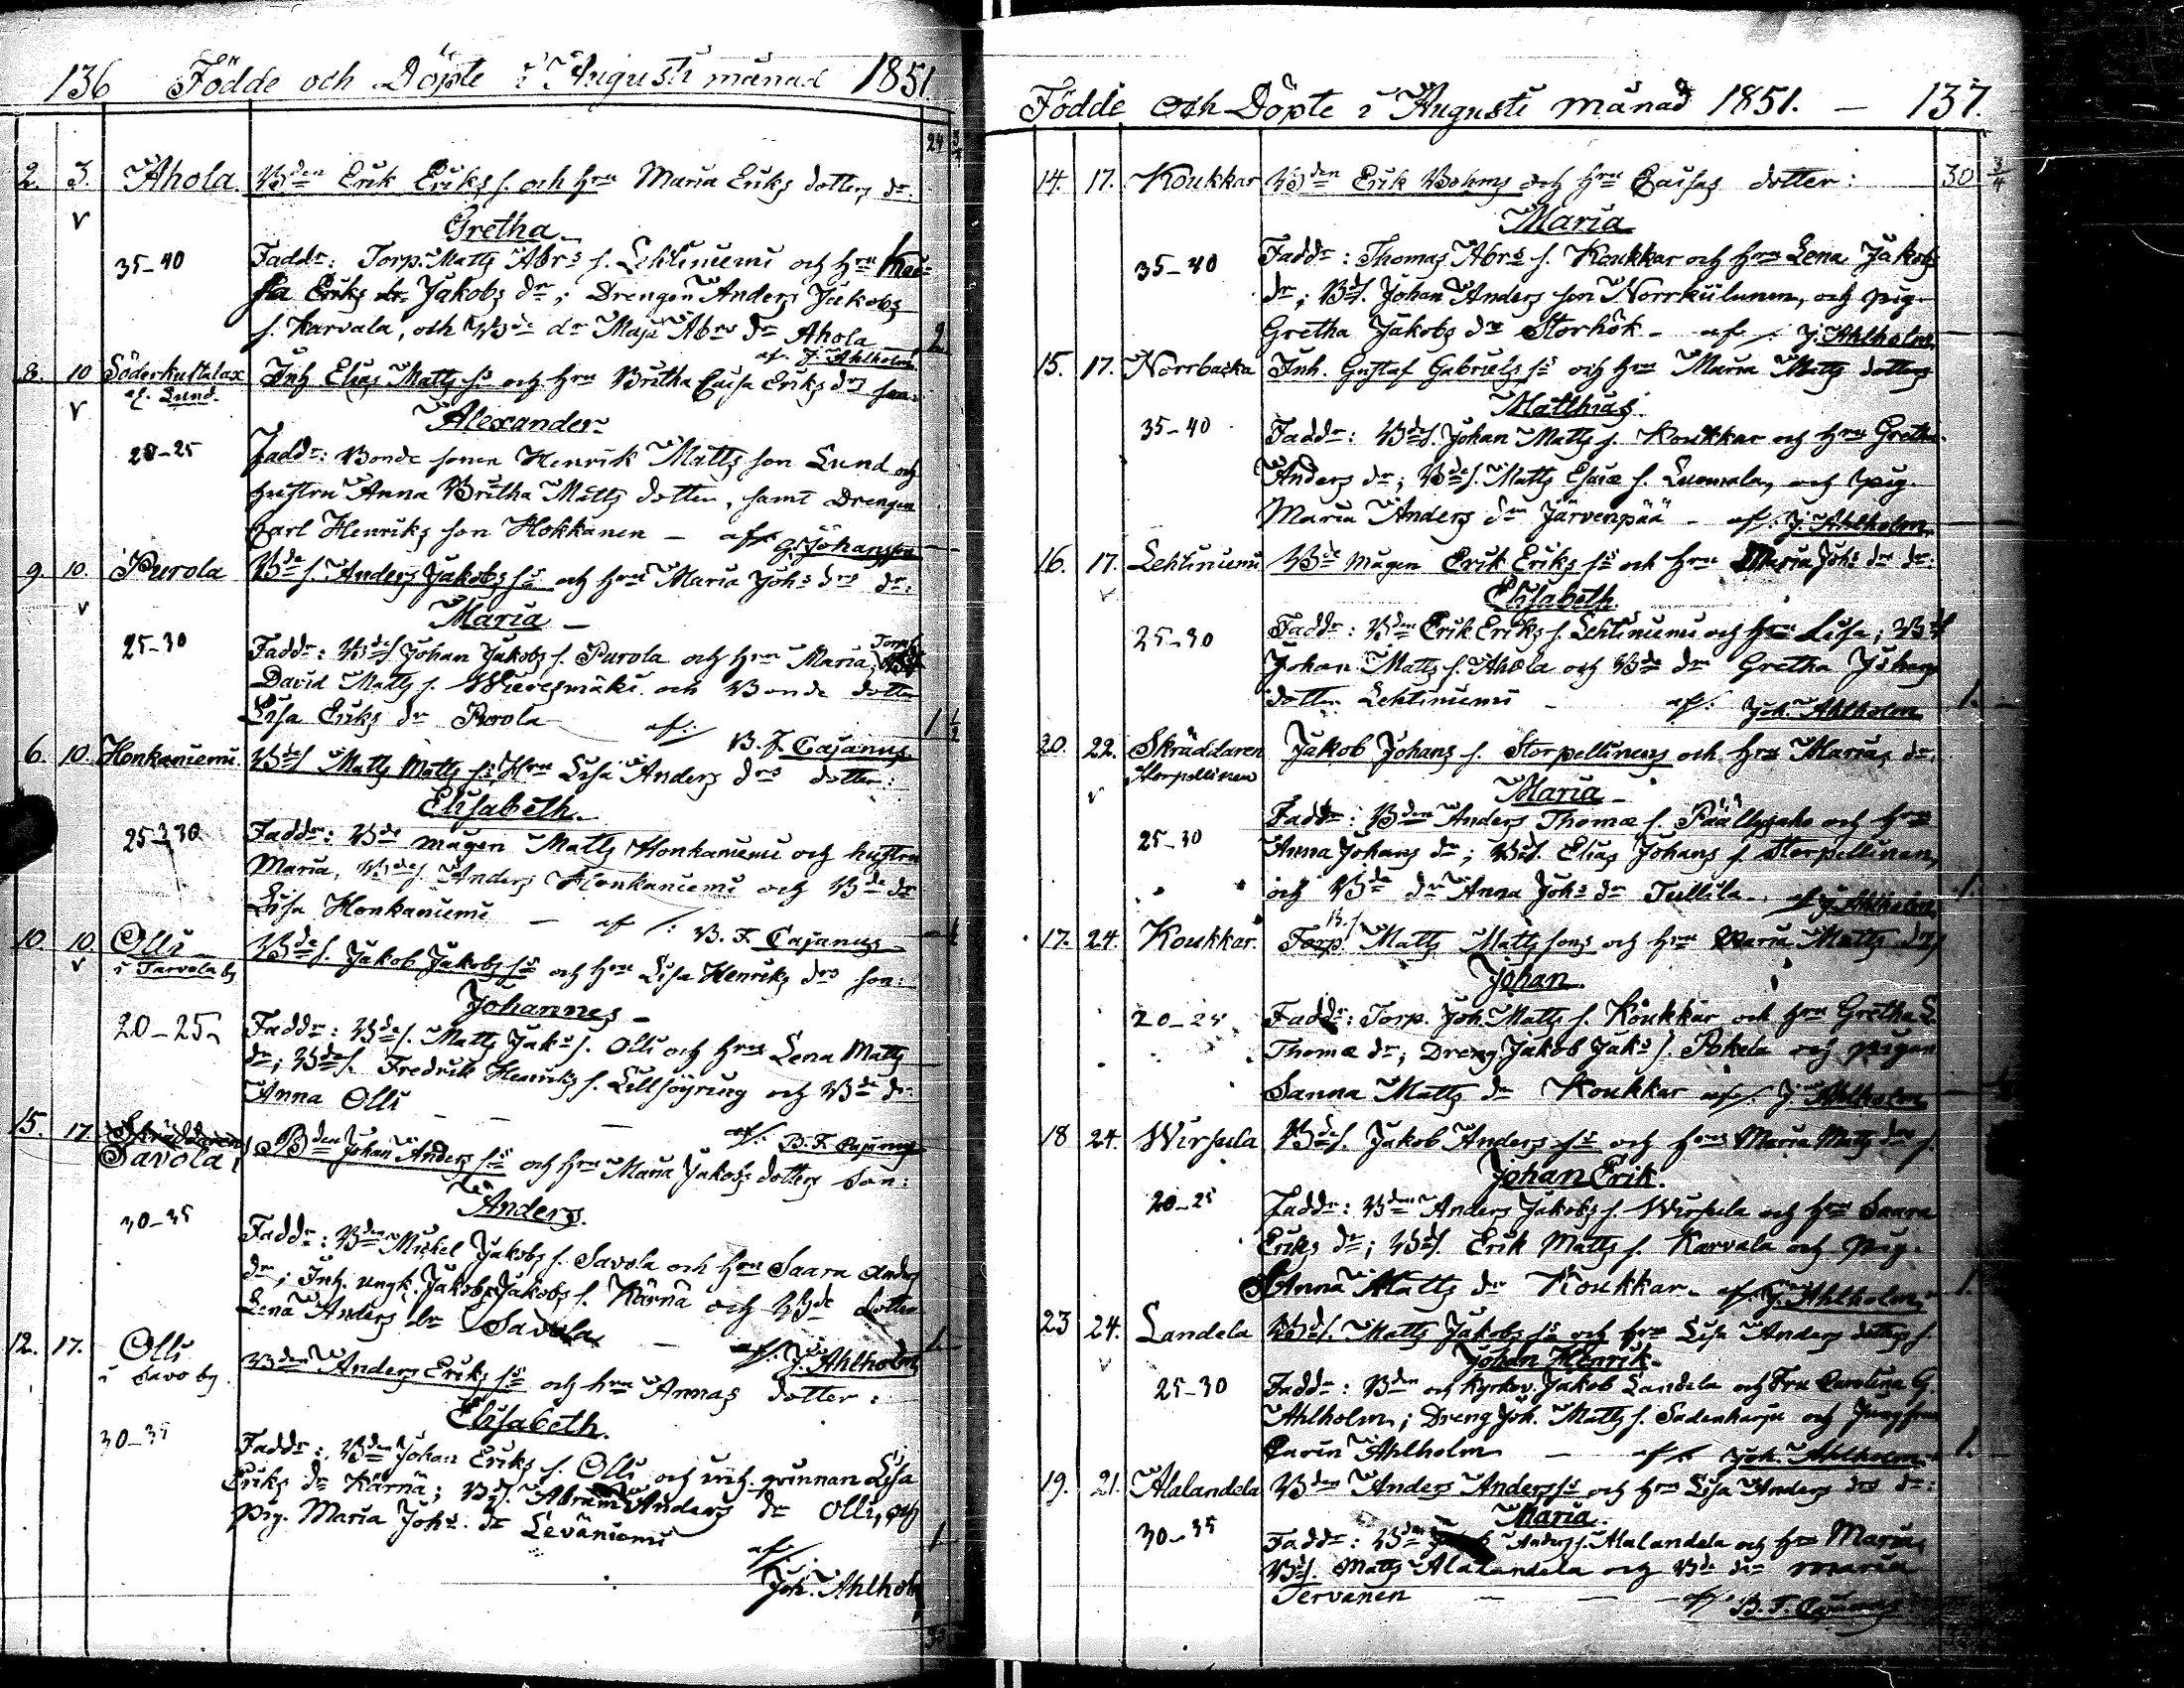 136 Födde och Döpte i Augusti månad 1851.
24 3/4
2. 3. Ahola. Bden Erik Eriks s. och hru Maria Eriks dotters dr:
Gretha
35-40 Faddr: Torp. Matts Abrs s. Lehtiniemi och hru
Jakobs dr; Drengen Anders Jakobs
s. Karvala, och Bde dr Maja Abrs dr Ahola 2
af J. Ahlholm.
8. 10 Söderkultalax Inh. Elias Matts ss och hru Britha Caisa Eriks drs son:
af. Lund.
Alexander
20-25 Faddr: Bonde sonen Henrik Matts son Lund och
hustru Anna Britha Matts dotter, samt Drengen
Carl Henriks son Hokkanen - af G. Johansson
9. 10. Purola Bde s. Anders Jakobs ss och hru Maria Johs drs dr:
Maria
25-30 Faddr: Bdes Johan Jakobs s. Purola och hru Maria, Torp.
David Matts s. Wieresmäki och Bonde dotter
Lisa Eriks dr Purola af: 1 1/2
B. F. Cajanus
6. 10. Honkaniemi. Bdes Matts Matts ss, Hru Lisa Anders drs dotter:
Elisabeth.
25-30 Faddr: Bde mågen Matts Honkaniemi och hustru
Maria, Bdes Anders Honkaniemi och Bde dr
Lisa Honkaniemi - af
B. F. Cajanus
10. 10. Olli Bdes. Jakob Jakobs ss och hru Lisa Henriks drs son:
i Tarvola by
Johannes
20-25 Faddr: Bdes. Matts Jaks s. Olli och hru Lena Matts
dr; Bdes. Fredrik Henriks s. Lillsöyring och Bde dr
Anna Olli - - -
af: B. F. Cajanus
15. 17. Skräddaren
Savola, Bden Johan Anders ss och hru Maria Jakobs dotters son:
Anders.
30-35 Faddr: Bden Mickel Jakobs s. Savola och hru Saara Anders
dr; Inh. ungk. Jakobs Jakobs s. Kärnä och Bde dotter
Lena Anders dr Savola - 1
af. J. Ahlholm
12. 17. Olli Bden Anders Eriks ss och hru Annas dotter:
i Savo by.
Elisabeth.
30-35 Faddr: Bden Johan Eriks s. Olli och inh. qvinnan Lisa
Eriks dr Kärnä; Bds. Abram Anders dr Olli, och
pig. Maria Johs. dr Leväniemi 1
af.
Joh. Ahlholm
Födde och Döpte i Augusti månad 1851. - 137.
14. 17. Koukkar Bden Erik Bohms och hru Caisas dotter: 30 3/4
Maria
35-40 Faddr: Thomas Abrs s. Koukkar och hru Lena Jakobs
dr; Bds. Johan Anders son Norrkiilunen, och pig.
Gretha Jakobs dr Storhök - af. J. Ahlholm
15. 17. Norrbacka Inh. Gustaf Gabriels ss och hru Maria Matts dotters
Matthias
35-40 Faddr: Bdes. Johan Matts s. Koukkar och hru Gretha
Anders dr; Bdes. Matts Esaiæ s. Luomala, och pig.
Maria Anders dr Järvenpää - af. J. Ahlholm
16. 17. Lehtiniemi Bde mågen Erik Eriks ss och hru Maria Johs drs dr:
Elisabeth.
25-30 Faddr: Bden Erik Eriks s. Lehtiniemi och hru Lisa; Bds
Johan Matts s. Ahola och Bde dr Gretha Johans
dotter Lehtiniemi - af: Joh. Ahlholm 1.
20. 22. Skräddaren Jakob Johans s. Storpellinens och hru Marias dr:
Storpellinen
Maria
25-30 Faddr: Bden Anders Thomæ s. Päällysaho och hru
Anna Johans dr; Bds. Elias Johans s. Storpellinen,
och Bde dr Anna Johs dr Tullila. af J. Ahlholm 1.
17. 24. Koukkar. Torp. Matts Matts sons och hru Maria Matts drs
Johan
20-25 Faddr: Torp. Joh. Matts s. Koukkar och hru Gretha L.
Thomæ dr; Dreng. Jakob Jaks s. Pokela och pigan
Sanna Matts dr Koukkar af. J. Ahlholm
18 24. Wirsula Bdes. Jakob Anders ss och hru Maria Matts drs s.
Johan Erik.
20-25 Faddr: Bden Anders Jakobs s. Wirsula och hru Saara
Eriks dr; Bds. Erik Matts s. Karvala och pig.
Anna Matts dr Koukkar - af. J. Ahlholm 1.
23 24. Landela Bds. Matts Jakobs ss och hru Lisa Anders dotters s.
Johan Henrik.
25-30 Faddr: Bden och Kyrkov. Jakob Landela och Fru Carolina G.
Ahlholm; Dreng Joh. Matts s. Sadenharju och Jungfru
Carin Ahlholm - af Joh. Ahlholm 1.
19. 21. Alalandela Bden Anders Anders ss och hru Lisa Anders drs dr:
Maria.
30-35 Faddr: Bden Anders s. Alalandela och hru Maria,
Bds. Matts Alalandela och Bde dr Maria
Tervanen - - af. B. F. Cajanus